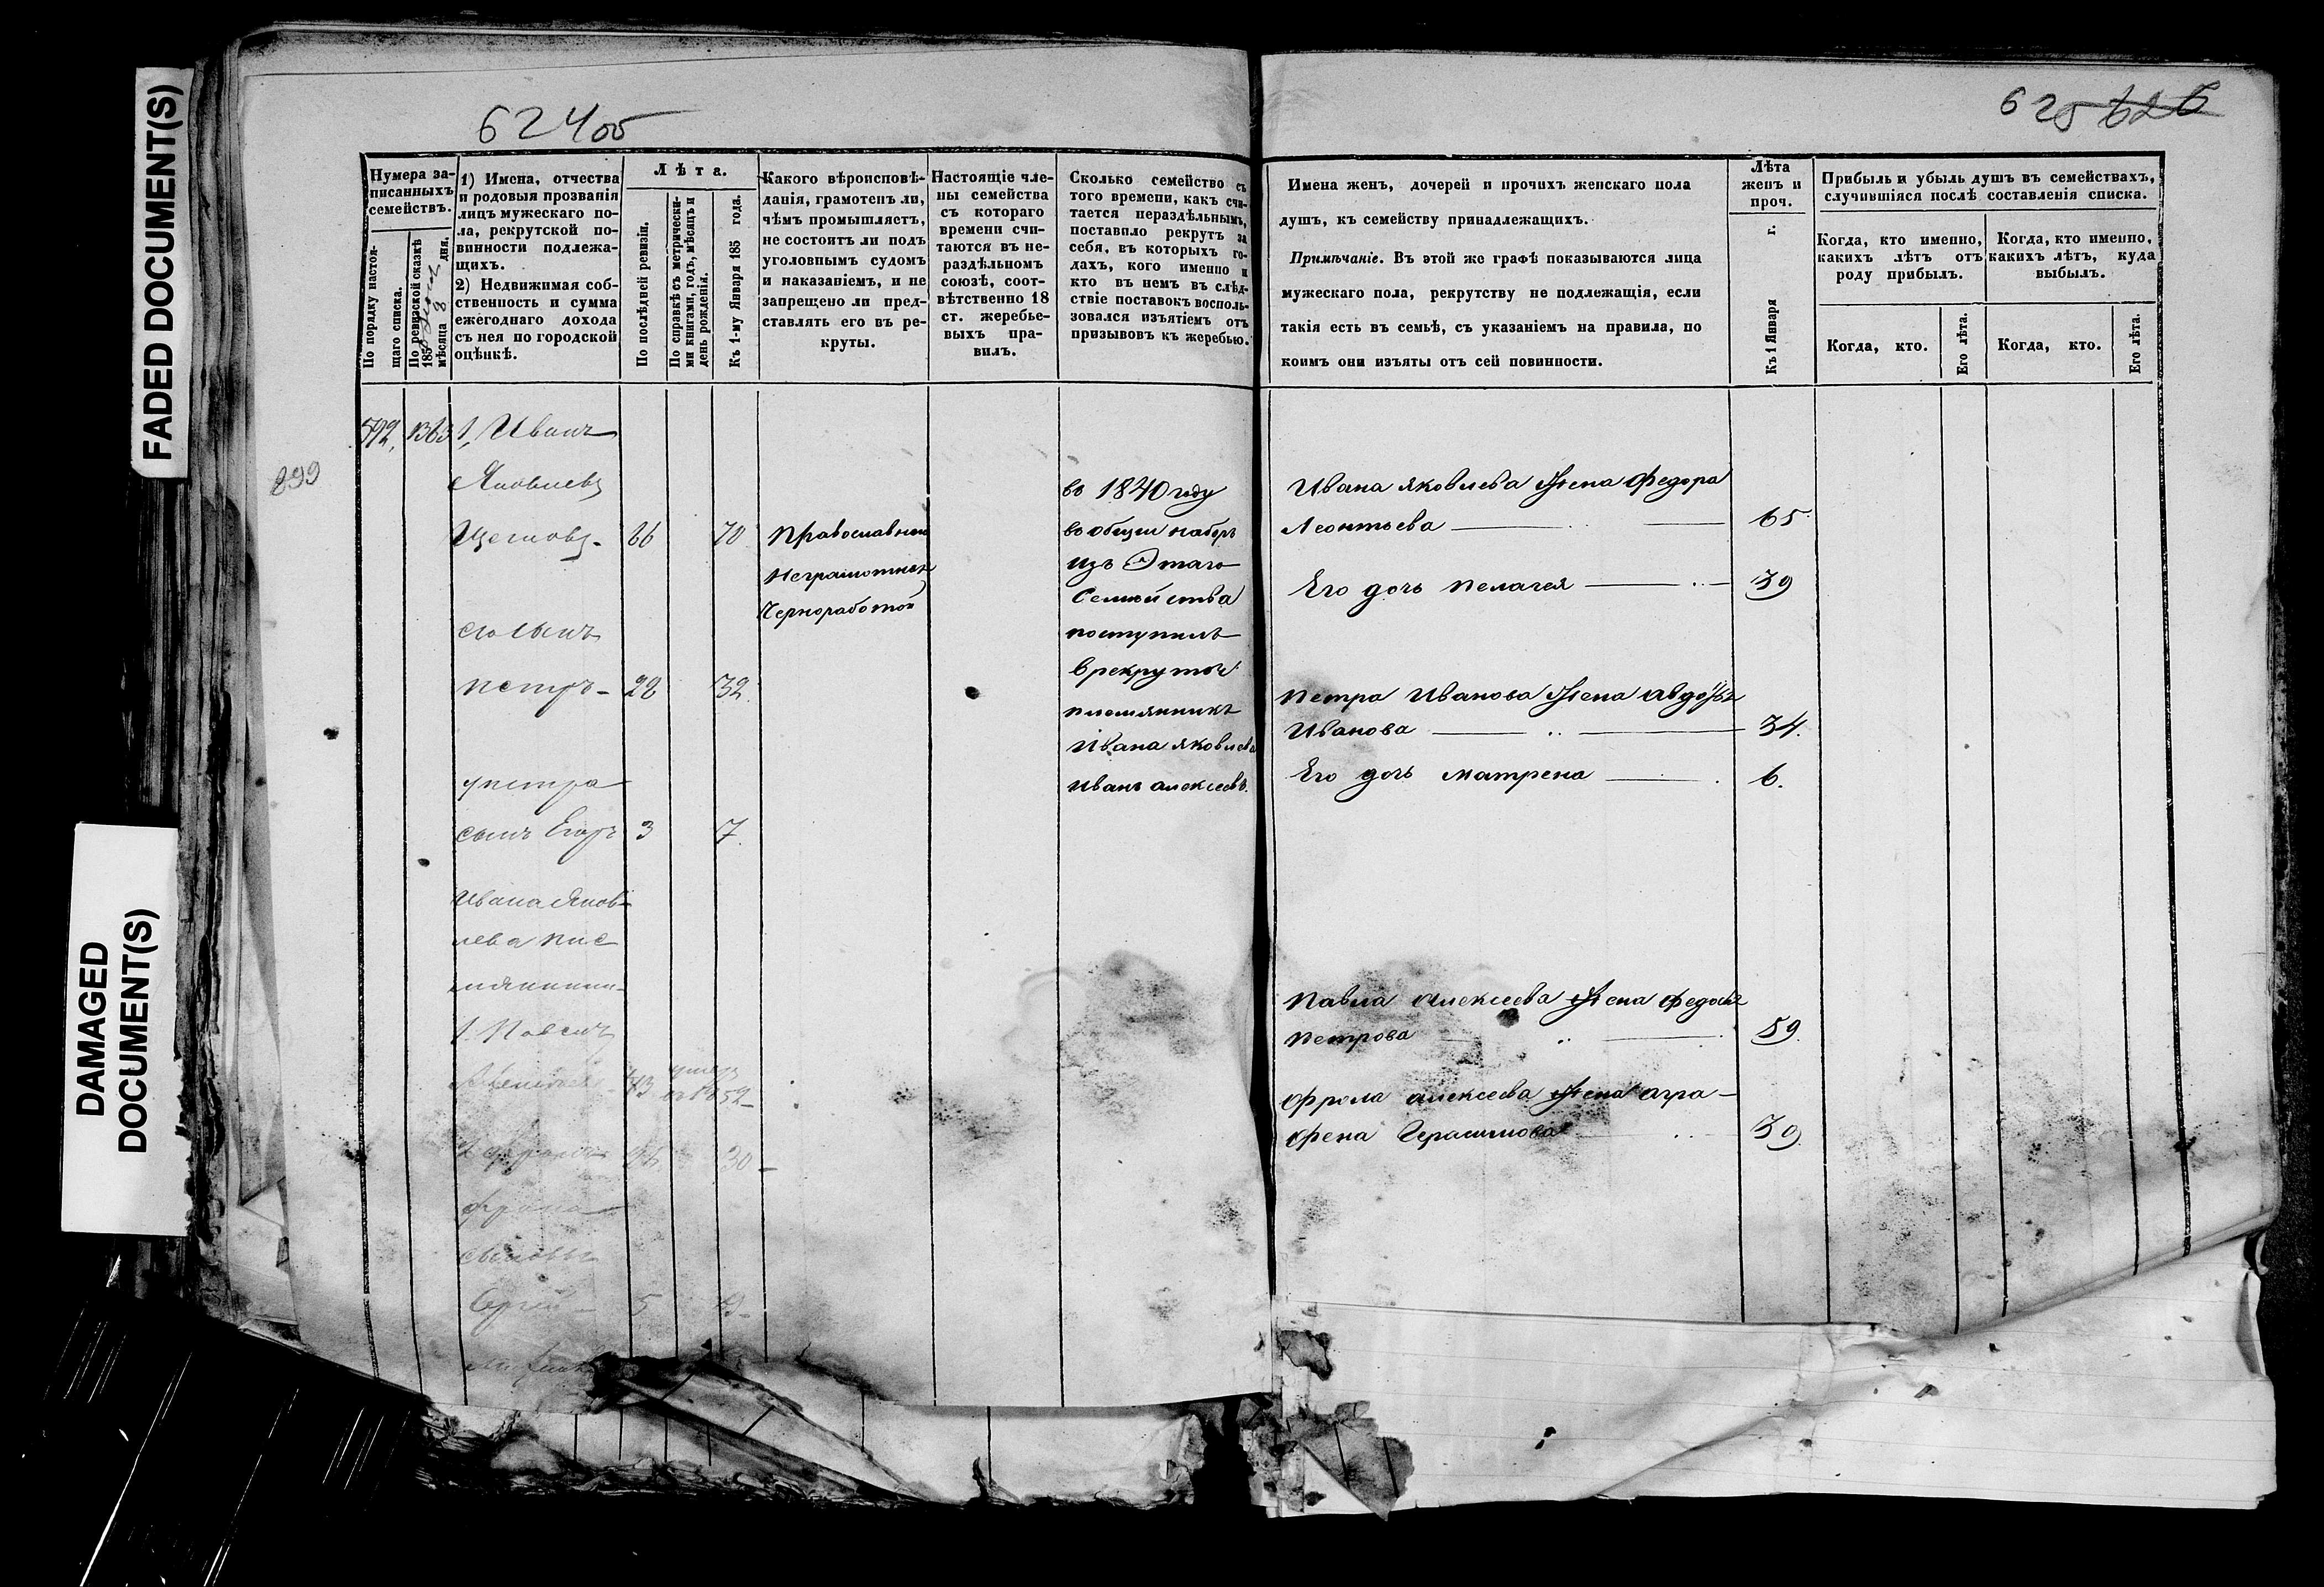 FADED DOCUMENT(S)
DAMAGED
DOCUMENT(S)
624об
Нумера за-
писанныхъ
семействъ.
По порядку настоя-
щаго списка.
По ревизской сказкѣ
185
мѣсяца 8 дня.
1) Имена, отчества
и родовыя прозванія
лицъ мужескаго по-
ла, рекрутской по-
винности подлежа-
щихъ.
2) Недвижимая соб-
ственность и сумма
ежегоднаго дохода
съ нея по городской
оцѣнкѣ.
Лѣта.
По послѣдней ревизіи.
По справкѣ съ метрически-
ми книгами, годъ, мѣсяцъ и
день рожденія.
Къ 1-му Января 185 года.
Какого вѣроисповѣ-
данія, грамотенъ ли,
чѣмъ промышляетъ,
не состоитъ ли подъ
уголовнымъ судомъ
и наказаніемъ, и не
запрещено ли пред-
ставлять его въ ре-
круты.
Настоящіе чле-
ны семейства
съ котораго
времени счи-
таются въ не-
раздѣльномъ
союзѣ, соот-
вѣтственно 18
ст. жеребье-
выхъ пра-
вилъ.
Сколько семейство съ
того времени, какъ счи-
тается нераздѣльнымъ,
поставило рекрутъ за
себя, въ которыхъ го-
дахъ, кого именно и
кто въ немъ въ слѣд-
ствіе поставокъ восполь-
зовался изъятіемъ отъ
призывовъ къ жеребью.
592, 1363 1, Иванъ
899
Яковлевъ
Щегловъ - 66 70
его сынъ
Петръ - 28 32.
у петра
сынъ Егоръ 3 7.
Ивана Яков-
лева пле
мянники
1. Павелъ
43 умеръ
въ 1852
30 -
Фрола
сыновья
Сергей - 5
Православный
Неграмотный
Черноработой
въ 1840 году
въ общий наборъ
изъ Этаго
Семейства
поступилъ
в рекруты
племянникъ
Ивана яковлева
Иванъ алексеевъ.
625 626
Имена женъ, дочерей и прочихъ женскаго пола
душъ, къ семейству принадлежащихъ.
Примѣчаніе. Въ этой же графѣ показываются лица
мужескаго пола, рекрутству не подлежащія, если
такія есть въ семьѣ, съ указаніемъ на правила, по
коимъ они изъяты отъ сей повинности.
Лѣта
женъ и
проч.
Къ 1 Января г.
Прибыль и убыль душъ въ семействахъ,
случившіяся послѣ составленія списка.
Когда, кто именно,
какихъ лѣтъ отъ
роду прибылъ.
Когда, кто именно,
какихъ лѣтъ, куда
выбылъ.
Когда, кто.
Его лѣта.
Когда, кто.
Его лѣта.
Ивана яковлева Жена Федора
Леонтьева 65
Его дочь пелагея 39
Петра Иванова Жена авдотья
Иванова 34.
Его дочь матрена 6.
Павла алексеева Жена федосья
Петрова 59.
Фрола алексеева Жена агра-
фена Герасимова 39.